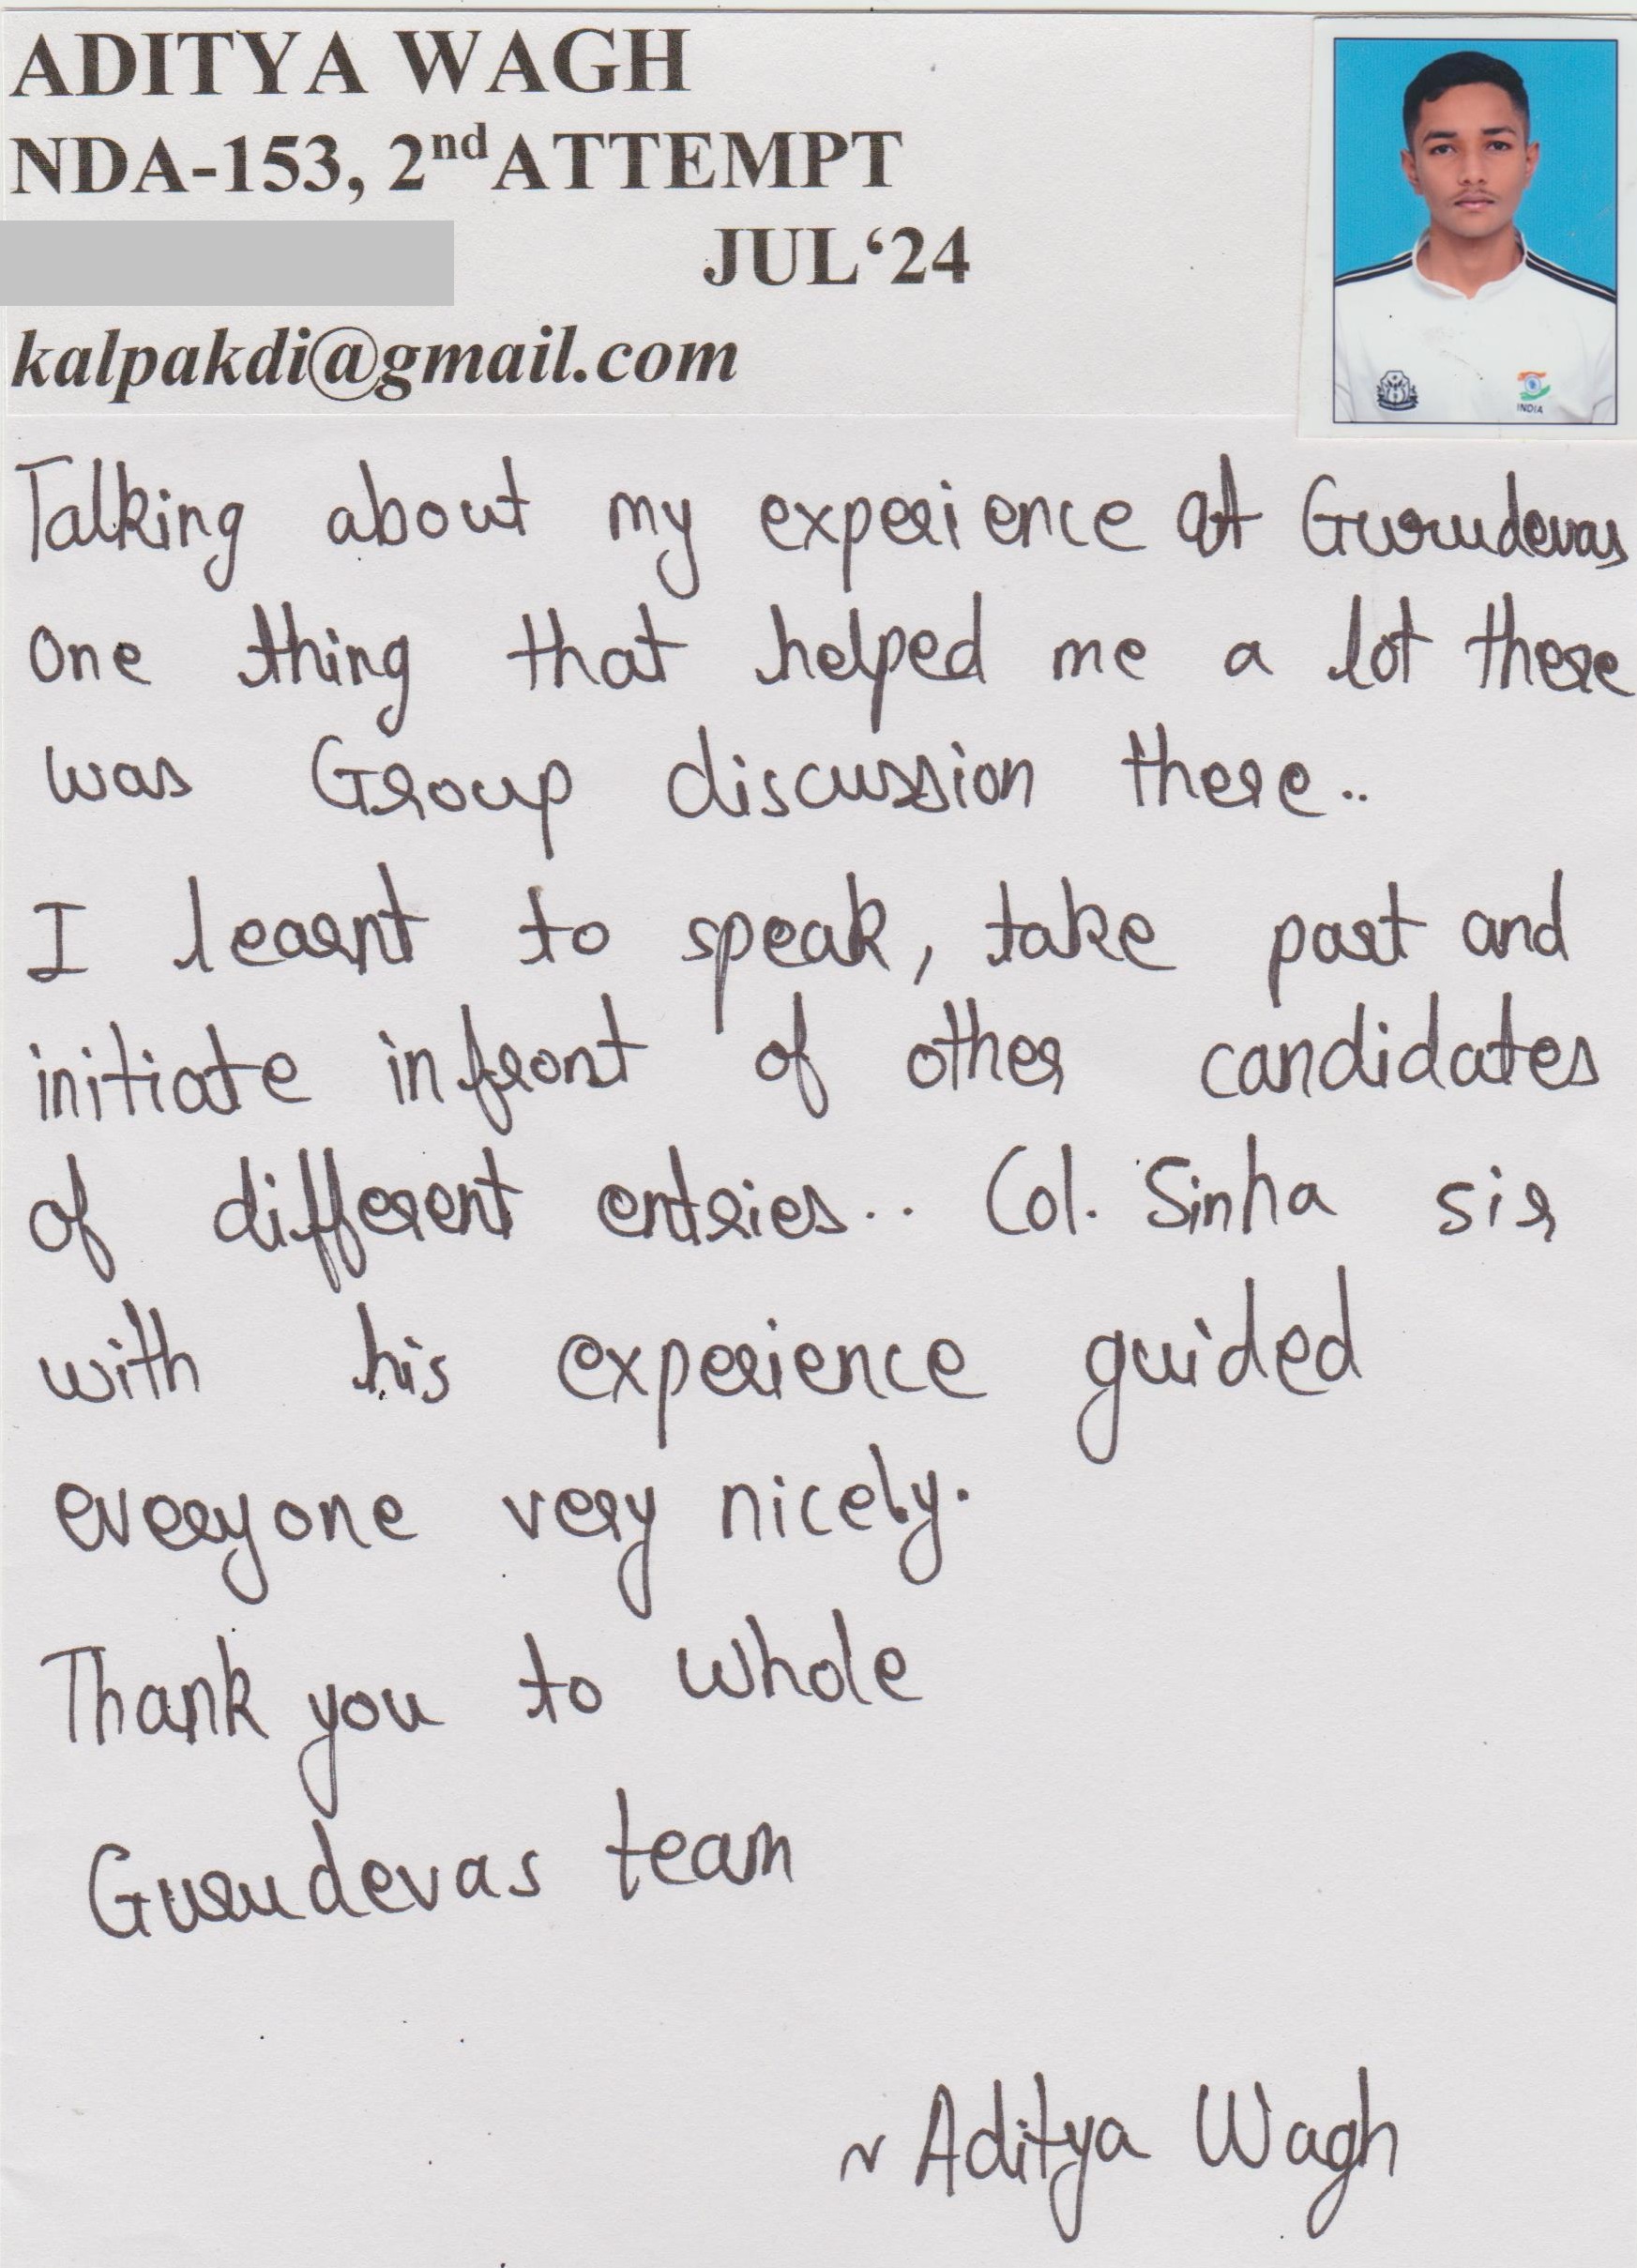 ADITYA WAGH
NDA-153, 2nd ATTEMPT
JUL‘24
kalpakdi@gmail.com
INDIA
Talking about my experience at Gurudevas
one thing that helped me a lot there
was Group discussion there..
I learnt to speak, take part and
initiate infront of other candidates
of different entries.. Col. Sinha sir
with his experience guided
everyone very nicely.
Thank you to whole
Gurudevas team
~ Aditya Wagh